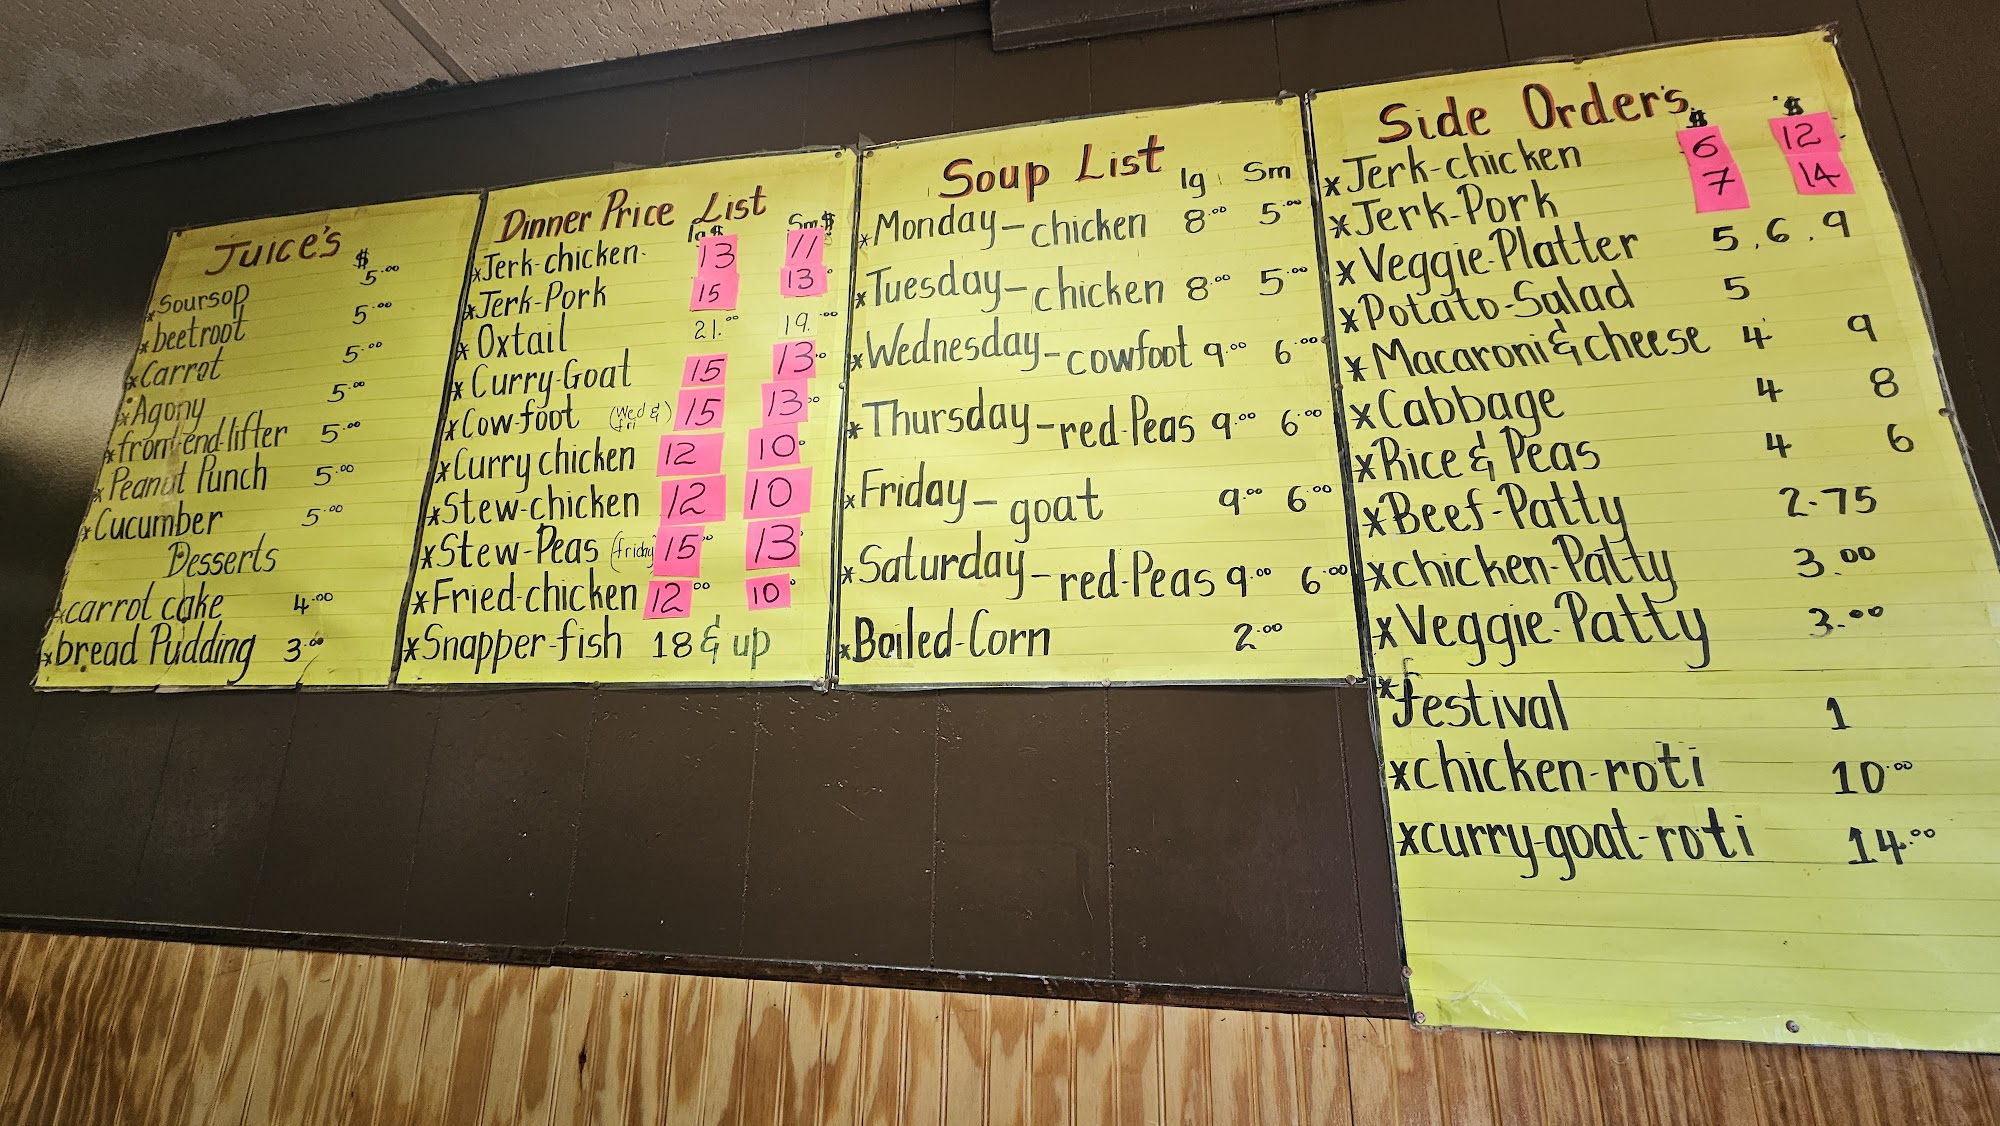 Juice's
$
*Soursop 5.00
*beetroot 5.00
*Carrot 5.00
*Agony 5.00
*front-end-lifter 5.00
*Peanut Punch 5.00
*Cucumber 5.00
Desserts
*carrot cake 4.00
*bread Pudding 3.00
Dinner Price List
lg $ Sm $
*Jerk-chicken- 13 11
*Jerk-Pork 15 13
*Oxtail 21.00 19.00
*Curry-Goat 15 13
*Cow-foot (Wed & fri) 15 13
*Curry chicken 12 10
*Stew-chicken 12 10
*Stew-Peas (friday) 15 13
*Fried-chicken 12.00 10
*Snapper-fish 18 & up
Soup List
lg Sm
*Monday-chicken 8.00 5.00
*Tuesday-chicken 8.00 5.00
*Wednesday-cowfoot 9.00 6.00
*Thursday-red-Peas 9.00 6.00
*Friday-goat 9.00 6.00
*Saturday-red-Peas 9.00 6.00
*Boiled-Corn 2.00
Side Order's
$ $
*Jerk-chicken 6 12
*Jerk-Pork 7 14
*Veggie-Platter 5, 6, 9
*Potato-Salad 5
*Macaroni & cheese 4 9
*Cabbage 4 8
*Rice & Peas 4 6
*Beef-Patty 2.75
*chicken-Patty 3.00
*Veggie-Patty 3.00
*festival 1
*chicken-roti 10.00
*curry-goat-roti 14.00